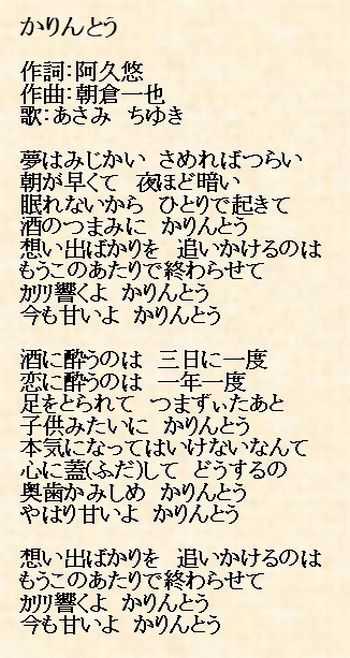 かりんとう
作詞：阿久悠
作曲：朝倉一也
歌：あさみ　ちゆき
夢はみじかい　さめればつらい
朝が早くて　夜ほど暗い
眠れないから　ひとりで起きて
酒のつまみに　かりんとう
想い出ばかりを　追いかけるのは
もうこのあたりで終わらせて
ｶﾘﾘ響くよ　かりんとう
今も甘いよ　かりんとう
酒に酔うのは　三日に一度
恋に酔うのは　一年一度
足をとられて　つまずぃたあと
子供みたいに　かりんとう
本気になってはいけないなんて
心に蓋(ふだ)して　どうするの
奥歯かみしめ　かりんとう
やはり甘いよ　かりんとう
想い出ばかりを　追いかけるのは
もうこのあたりで終わらせて
ｶﾘﾘ響くよ　かりんとう
今も甘いよ　かりんとう